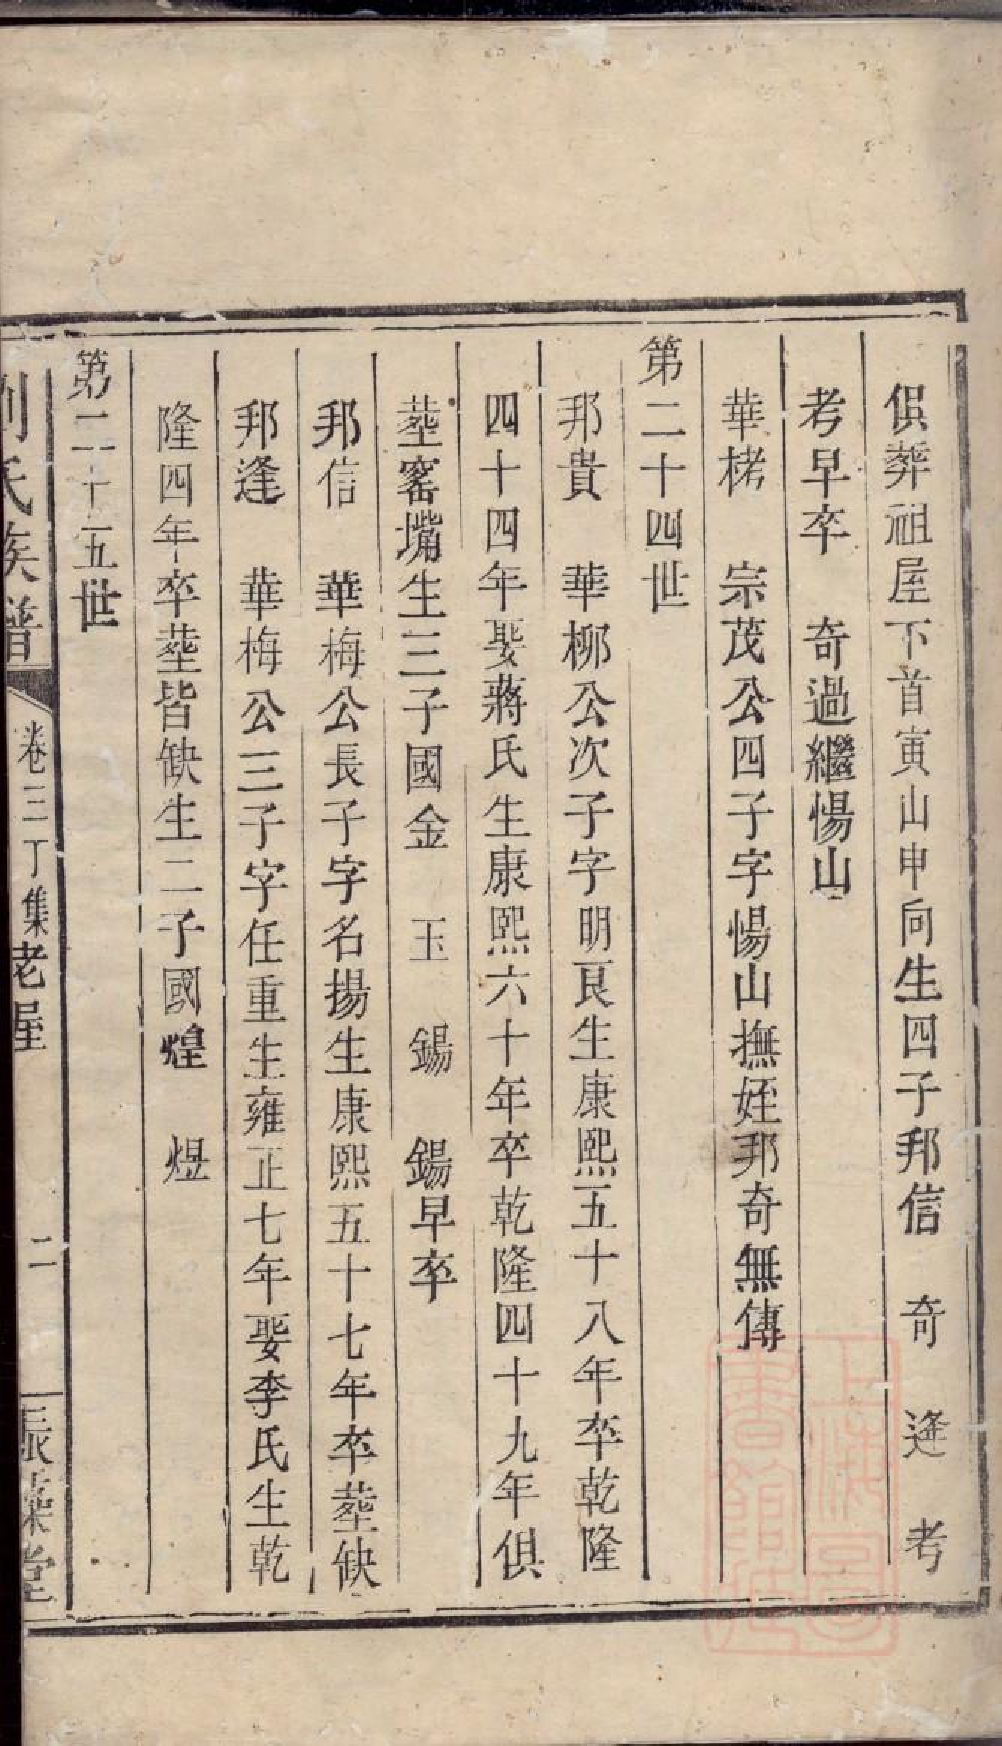 俱葬祖屋下首寅山申向生四子邦信　奇　逢　考
考早卒　奇過繼惕山
華栲　宗茂公四子字惕山撫姪邦奇無傳
第二十四世
邦貴　華柳公次子字明艮生康熙五十八年卒乾隆
四十四年娶蔣氏生康熙六十年卒乾隆四十九年俱
塟窰嘴生三子國金　玉　錫　錫早卒
邦信　華梅公長子字名揚生康熙五十七年卒塟缺
邦逢　華梅公三子字任重生雍正七年娶李氏生乾
隆四年卒塟皆缺生二子國煌　煜
第二十五世
劉氏族譜　卷三丁集老屋　二　堂
上海圖書館藏